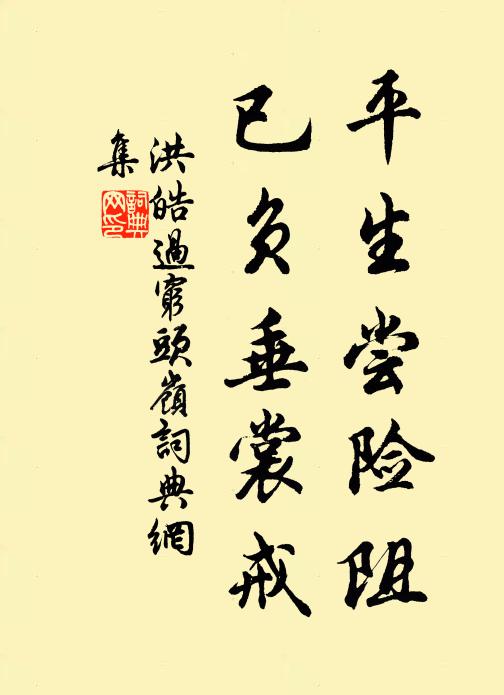 平生尝险阻
已负垂裳戒
洪皓過窮頭嶺詞典網
集
詞典
网印